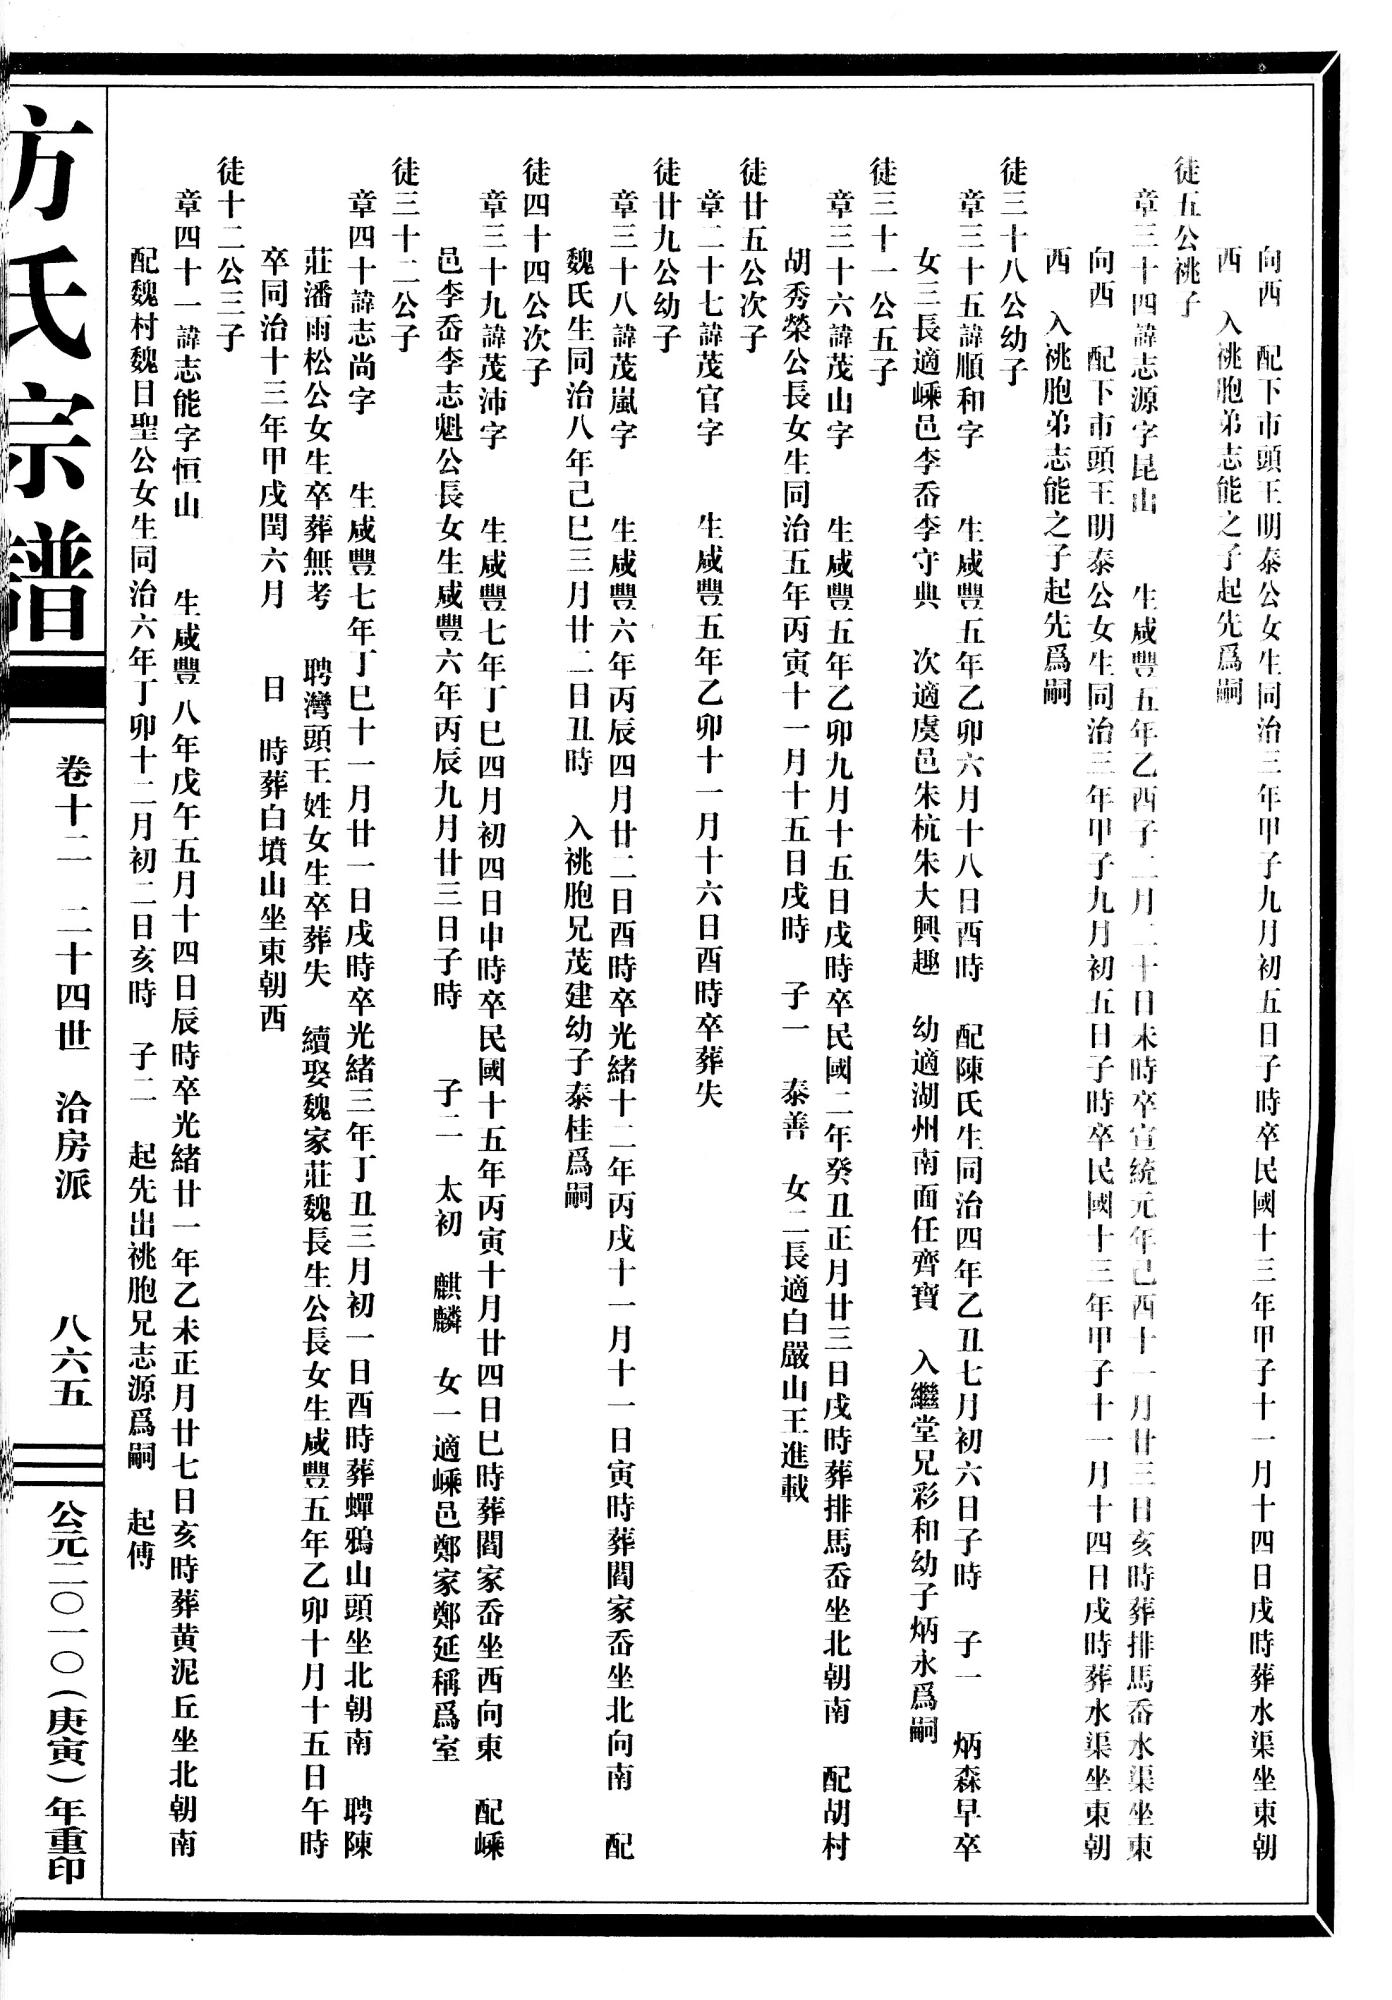 向西　配下市頭王明泰公女生同治三年甲子九月初五日子時卒民國十三年甲子十一月十四日戌時葬水渠坐東朝
西　入祧胞弟志能之子起先爲嗣
徒五公祧子
章三十四諱志源字昆山　生咸豐五年乙酉子二月二十日未時卒宣統元年己酉十一月廿三日亥時葬排馬岙水渠坐東
向西　配下市頭王明泰公女生同治三年甲子九月初五日子時卒民國十三年甲子十一月十四日戌時葬水渠坐東朝
西　入祧胞弟志能之子起先爲嗣
徒三十八公幼子
章三十五諱順和字　生咸豐五年乙卯六月十八日酉時　配陳氏生同治四年乙丑七月初六日子時　子一　炳森早卒
女三長適嵊邑李岙李守典　次適虞邑朱杭朱大興趣　幼適湖州南面任齊寶　入繼堂兄彩和幼子炳永爲嗣
徒三十一公五子
章三十六諱茂山字　生咸豐五年乙卯九月十五日戌時卒民國二年癸丑正月廿三日戌時葬排馬岙坐北朝南　配胡村
胡秀榮公長女生同治五年丙寅十一月十五日戌時　子一　泰善　女二長適白嚴山王進載
徒廿五公次子
章二十七諱茂官字　生咸豐五年乙卯十一月十六日酉時卒葬失
徒廿九公幼子
章三十八諱茂嵐字　生咸豐六年丙辰四月廿二日酉時卒光緒十二年丙戌十一月十一日寅時葬閻家岙坐北向南　配
魏氏生同治八年己巳三月廿二日丑時　入祧胞兄茂建幼子泰桂爲嗣
徒四十四公次子
章三十九諱茂沛字　生咸豐七年丁巳四月初四日申時卒民國十五年丙寅十月廿四日巳時葬閻家岙坐西向東　配嵊
邑李岙李志魁公長女生咸豐六年丙辰九月廿三日子時　子二　太初　麒麟　女一適嵊邑鄭家鄭延稱爲室
徒三十二公子
章四十諱志尚字　生咸豐七年丁巳十一月廿一日戌時卒光緒三年丁丑三月初一日酉時葬蟬鴉山頭坐北朝南　聘陳
莊潘雨松公女生卒葬無考　聘灣頭王姓女生卒葬失　續娶魏家莊魏長生公長女生咸豐五年乙卯十月十五日午時
卒同治十三年甲戌閏六月　日　時葬白墳山坐東朝西
徒十二公三子
章四十一諱志能字恒山　生咸豐八年戊午五月十四日辰時卒光緒廿一年乙未正月廿七日亥時葬黄泥丘坐北朝南
配魏村魏目聖公女生同治六年丁卯十二月初二日亥時　子二　起先出祧胞兄志源爲嗣　起傅
方氏宗譜
卷十二　二十四世　洽房派　八六五
公元二〇一〇（庚寅）年重印